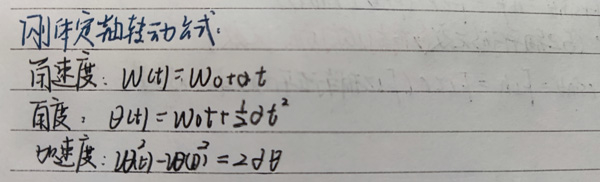 刚体定轴转动公式:
角速度: W(t)=W₀+αt
角度: θ(t)=W₀t+½αt²
加速度: ω(t)²-ω(0)²=2αθ